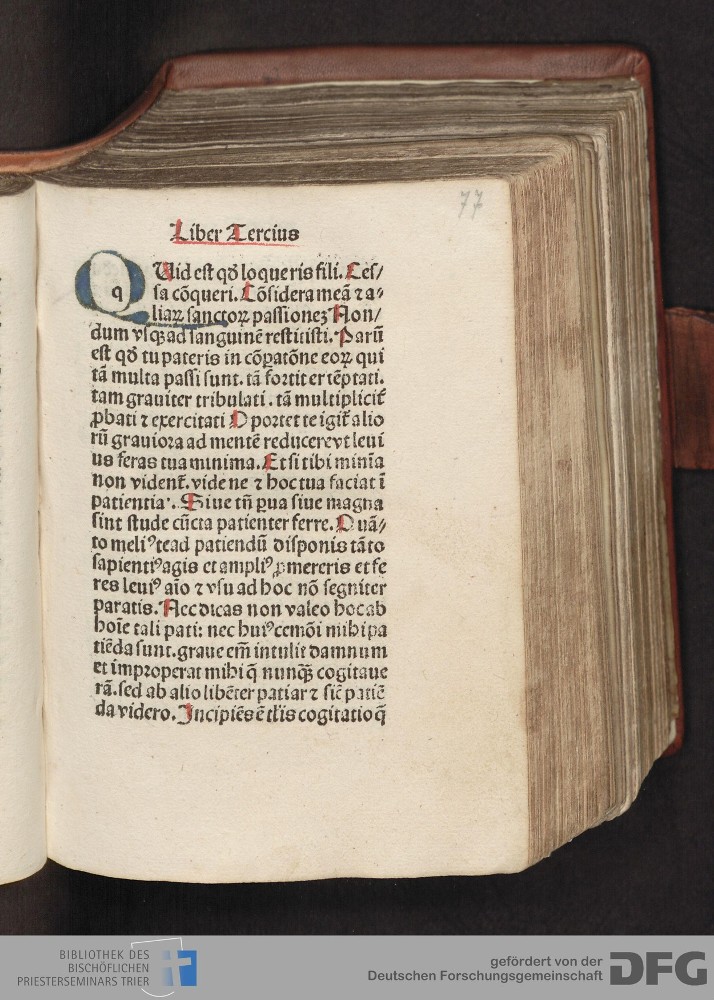 77
Liber Tercius
QUid est qd̕ loqueris fili. Ces/
sa cōqueri. Cōsidera meā ⁊ a-
liaꝝ sanctoꝝ passionez Non/
dum vsqꝫ ad sanguinē restitisti. Parū
est qd̕ tu pateris in cōꝑatōne eoꝝ qui
tā multa passi sunt. tā fortiter tēptati.
tam grauiter tribulati. tā multiplicit̕
ꝓbati ⁊ exercitati Oportet te igit̕ alio
rū grauiora ad mentē reducere vt leui
us feras tua minima. Et si tibi minīa
non vident̕. vide ne ⁊ hoc tua faciat ī
patientia. Siue tn̄ ꝑua siue magna
sint stude cūcta patienter ferre. Quā/
to meliꝰ te ad patiendū disponis tāto
sapientiꝰ agis et ampliꝰ ꝓmereris et fe
res leuiꝰ aīo ⁊ vsu ad hoc nō segniter
paratis. Nec dicas non valeo hoc ab
hoīe tali pati: nec huiꝰcemōi mihi pa
tiēda sunt. graue em̄ intulit damnum
et improperat mihi q̄ nunqꝫ cogitaue
rā. sed ab alio libēter patiar ⁊ sic̄ patiē
da videro. Incipiēs ē tl̄is cogitatio q̄
BIBLIOTHEK DES
BISCHÖFLICHEN
PRIESTERSEMINARS TRIER
gefördert von der
Deutschen Forschungsgemeinschaft
DFG